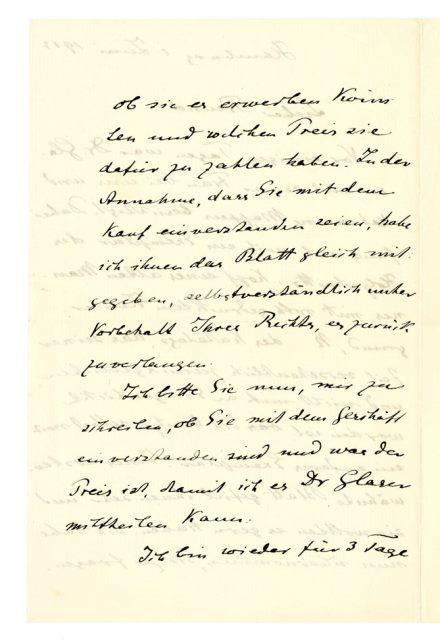 ob sie es erwerben könn
ten und welchen Preis sie
dafür zu zahlen haben. In der
Annahme, dass Sie mit dem
Kauf einverstanden seien, habe
ich ihnen das Blatt gleich mit
gegeben, selbstverständlich unter
Vorbehalt Ihres Rechts, es zurück
zuverlangen.
Ich bitte Sie nun, mir zu
schreiben, ob Sie mit dem Geschäft
einverstanden sind und was der
Preis ist, damit ich es Dr Glaser
mittheilen kann.
Ich bin wieder für 3 Tage